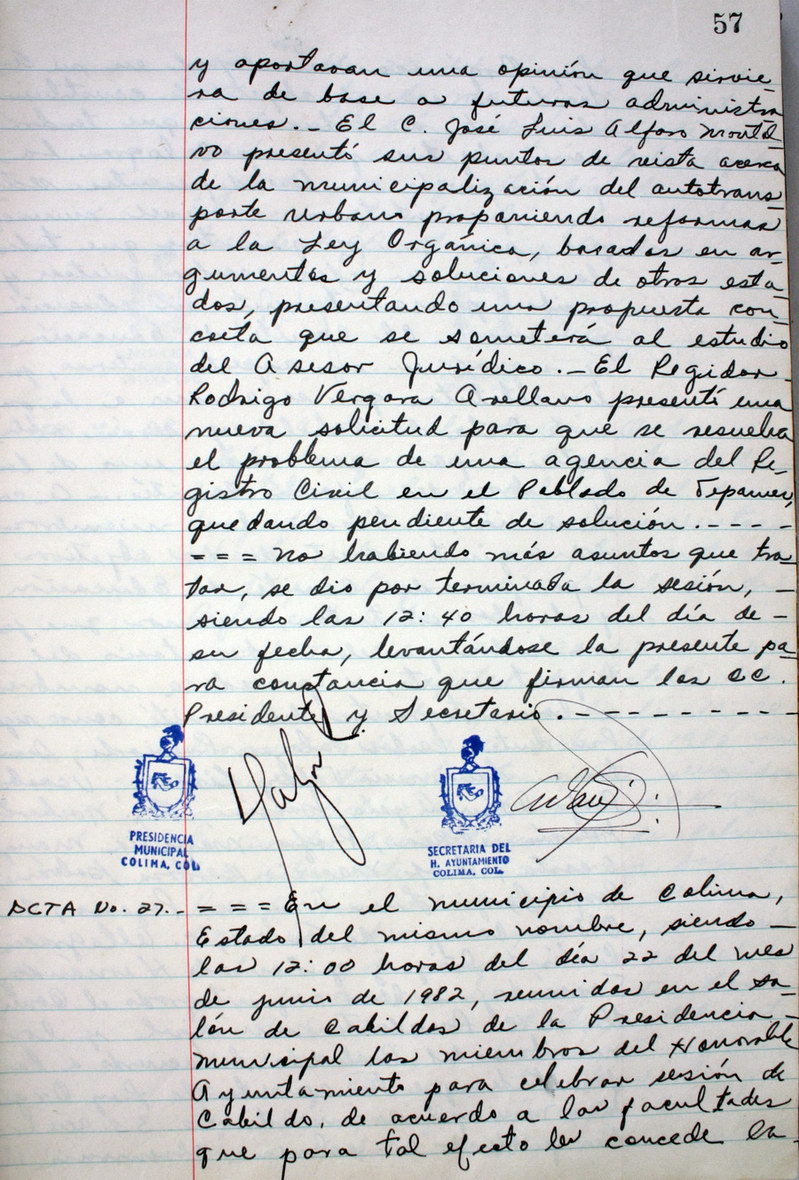 57
y aportaran una opinión que sirvie-
ra de base a futuras administra-
ciones.- El C. José Luis Alfaro Montal-
vo presentó sus puntos de vista acerca
de la municipalización del autotrans-
porte urbano proponiendo reformas
a la Ley Orgánica, basadas en ar-
gumentos y soluciones de otros esta-
dos, presentando una propuesta con-
creta que se someterá al estudio
del Asesor Jurídico.- El Regidor-
Rodrigo Vergara Arellano presentó una
nueva solicitud para que se resuelva
el problema de una agencia del Re-
gistro Civil en el Poblado de Tepames,
quedando pendiente de solución.----
=== No habiendo más asuntos que tra-
tar, se dio por terminada la sesión,-
siendo las 12:40 horas del día de-
su fecha, levantándose la presente pa-
ra constancia que firman los CC.
Presidente y Secretario.--------
PRESIDENCIA
MUNICIPAL
COLIMA, COL.
SECRETARIA DEL
H. AYUNTAMIENTO
COLIMA, COL.
ACTA No. 27.- === En el municipio de Colima,
Estado del mismo nombre, siendo-
las 12:00 horas del día 22 del mes
de junio de 1982, reunidos en el sa-
lón de Cabildos de la Presidencia-
Municipal los miembros del Honorable
Ayuntamiento para celebrar sesión de
Cabildo, de acuerdo a las facultades
que para tal efecto les concede la-